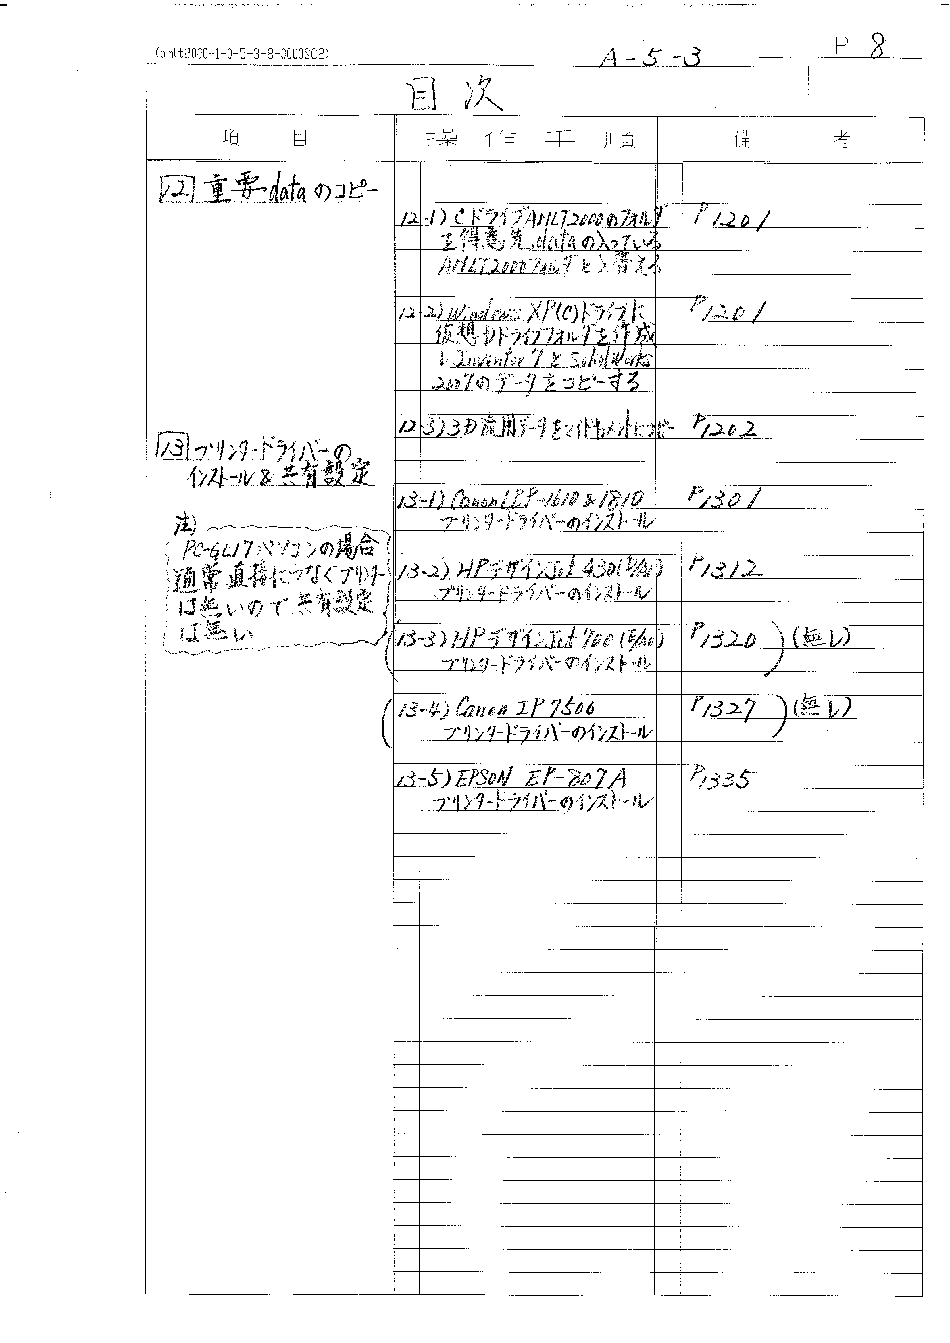 A-5-3
P 8
目次
項目 操作手順 備考
12 重要dataのコピー
12-1) CドライブAMLT2000のフォルダ P1201
を得意先dataの入っている
AMLT2000フォルダと入替える
12-2) Windows XP(C)ドライブに P1201
仮想Dドライブフォルダを作成
しInventor7とSolidWorks
2007のデータをコピーする
12-3) 3D応用データをマイドキュメントにコピー P1202
13 プリンタードライバーの
インストール&共有設定
13-1) Canon LBP-1610&1810 P1301
プリンタードライバーのインストール
注)
PC-GL17パソコンの場合
通常直接につなぐプリンター
は無いので共有設定
は無い
13-2) HPデザインJet 430 P1312
プリンタードライバーのインストール
13-3) HPデザインJet 700 P1320 (無し)
プリンタードライバーのインストール
13-4) Canon IP 7500 P1327 (無し)
プリンタードライバーのインストール
13-5) EPSON EP-807A P1335
プリンタードライバーのインストール